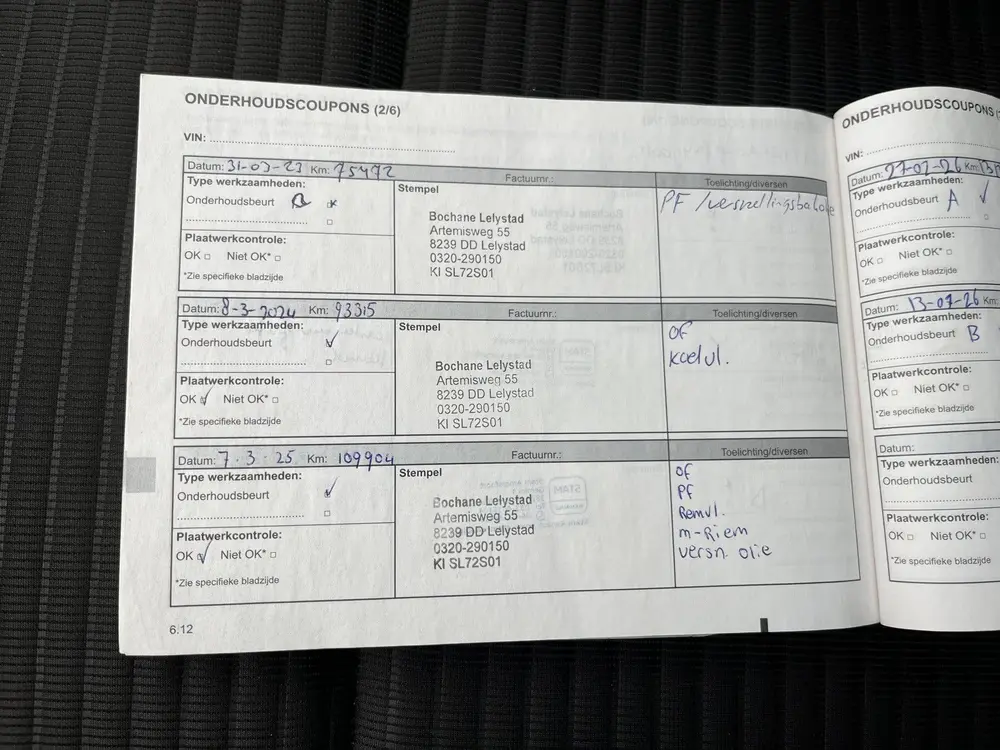 ONDERHOUDSCOUPONS (2/6)
VIN:
Datum: 31-03-23 Km: 75472
Factuurnr.:
Toelichting/diversen
Type werkzaamheden:
Onderhoudsbeurt
Stempel
PF /versnellingsbakolie
Bochane Lelystad
Artemisweg 55
8239 DD Lelystad
0320-290150
KI SL72S01
Plaatwerkcontrole:
OK Niet OK*
*Zie specifieke bladzijde
Datum: 8-3-2024 Km: 93315
Factuurnr.:
Toelichting/diversen
Type werkzaamheden:
Onderhoudsbeurt
Stempel
OF
Koelvl.
Bochane Lelystad
Artemisweg 55
8239 DD Lelystad
0320-290150
KI SL72S01
Plaatwerkcontrole:
OK Niet OK*
*Zie specifieke bladzijde
Datum: 7-3-25 Km: 109904
Factuurnr.:
Toelichting/diversen
Type werkzaamheden:
Onderhoudsbeurt
Stempel
OF
PF
Remvl.
m-Riem
versn. olie
Bochane Lelystad
Artemisweg 55
8239 DD Lelystad
0320-290150
KI SL72S01
Plaatwerkcontrole:
OK Niet OK*
*Zie specifieke bladzijde
6.12
ONDERHOUDSCOUPONS
VIN:
Datum: Km:
Type werkzaamheden:
Onderhoudsbeurt A
Plaatwerkcontrole:
OK Niet OK*
*Zie specifieke bladzijde
Datum: Km:
Type werkzaamheden:
Onderhoudsbeurt B
Plaatwerkcontrole:
OK Niet OK*
*Zie specifieke bladzijde
Datum:
Type werkzaamheden:
Onderhoudsbeurt
Plaatwerkcontrole:
OK Niet OK*
*Zie specifieke bladzijde